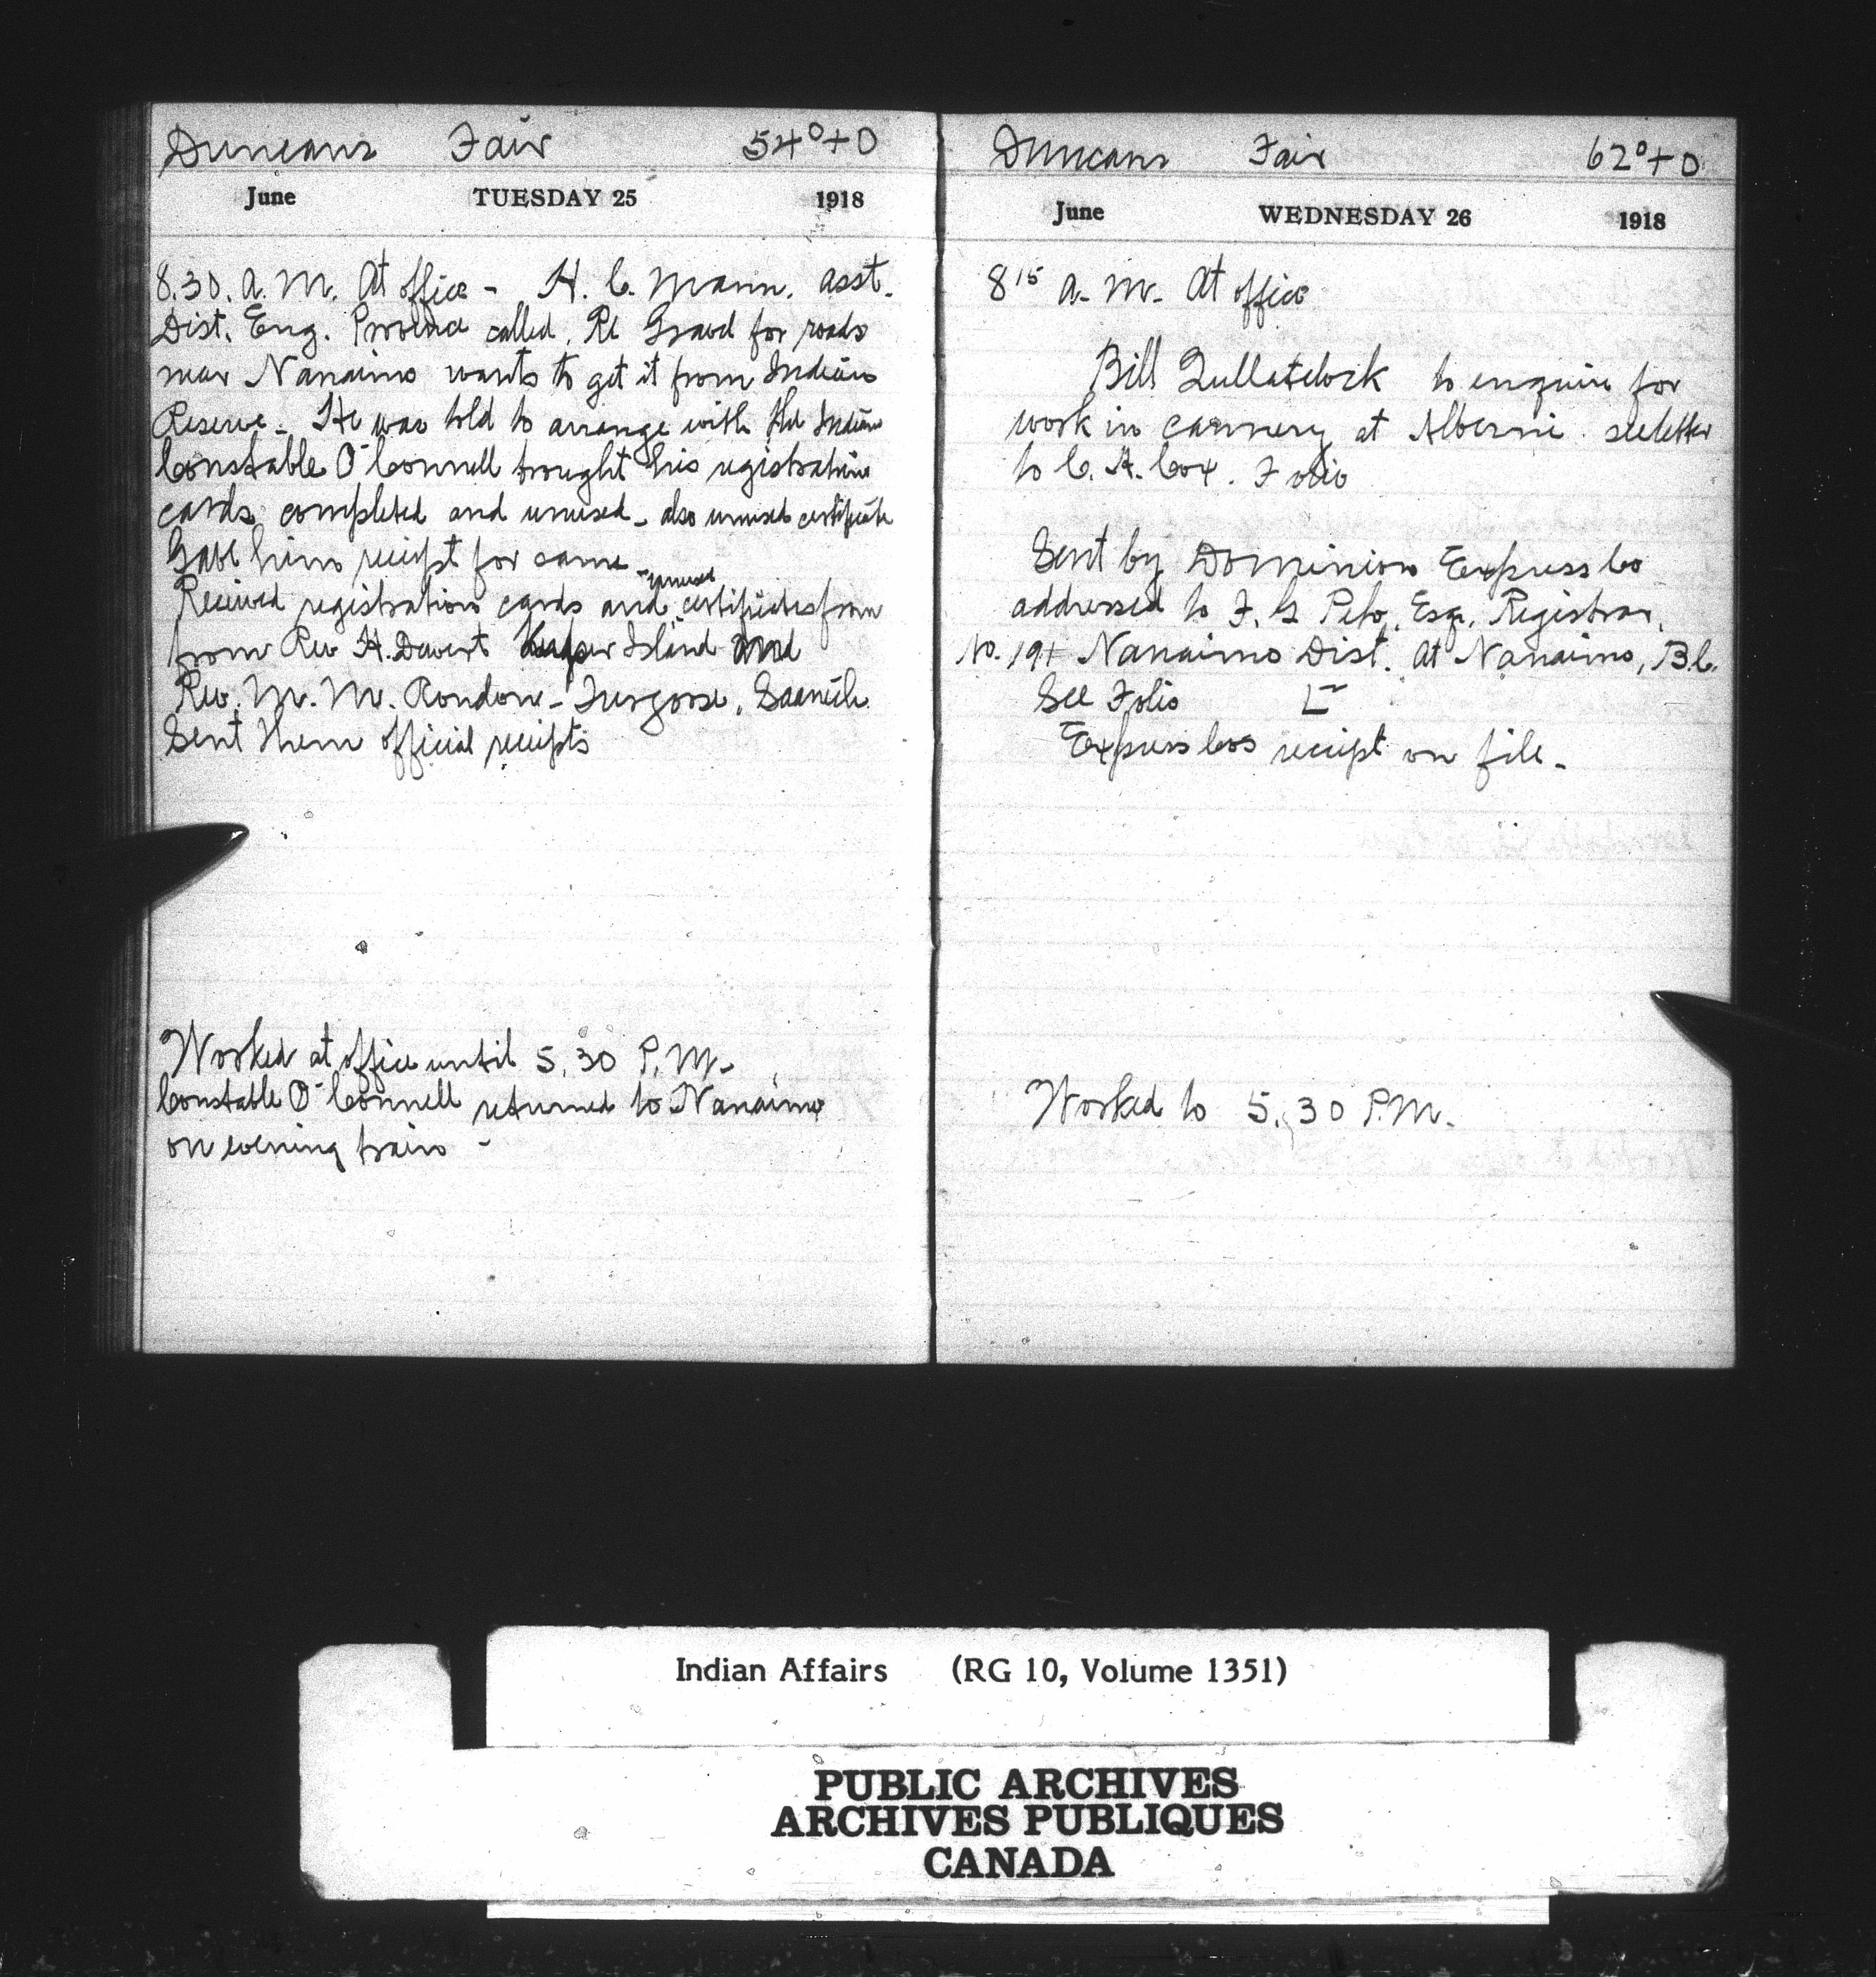 Duncans Fair 54°+0
June TUESDAY 25 1918
8.30. A.M. At office - H. C. Mann. asst.
Dist. Eng. Province called. Re Gravel for roads
near Nanaimo wants to get it from Indian
Reserve - He was told to arrange with the Indian
Constable O'Connell brought his registration
cards completed and unused - also unused certificate
Gave him receipt for same -
Received registration cards and unused certificates from
from Rev H. Davert Kuper Island and
Rev. M. M. Rondon - Turgoose, Saanich
Sent them official receipts
Worked at office until 5.30 P.M.
Constable O'Connell returned to Nanaimo
on evening train -
Duncans Fair 62°+0
June WEDNESDAY 26 1918
8 15 a.m. At office
Bill to enquire for
work in cannery at Alberni. see letter
to C. A. Cox. Folio
Sent by Dominion Express Co
addressed to F. G Peto, Esq. Registrar,
No. 19+ Nanaimo Dist. At Nanaimo, B.C.
See Folio
Express Cos receipt on file -
Worked to 5.30 P.M.
Indian Affairs (RG 10, Volume 1351)
PUBLIC ARCHIVES
ARCHIVES PUBLIQUES
CANADA